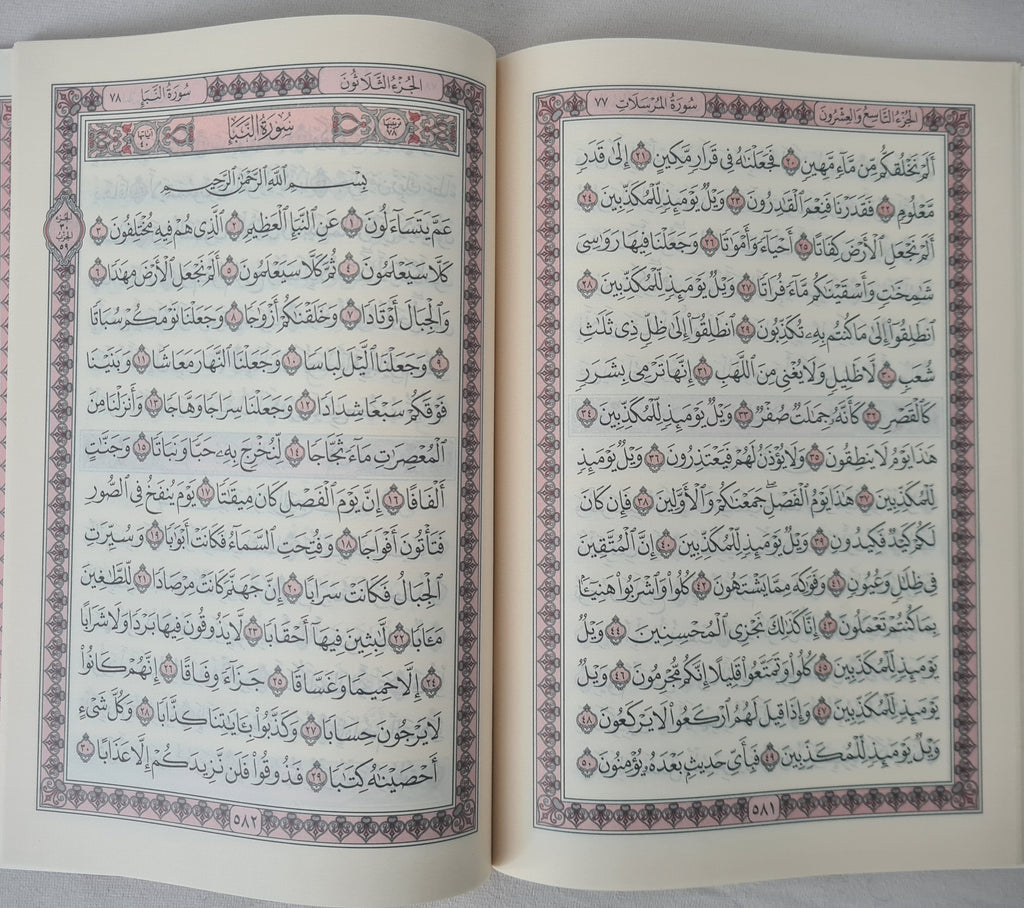 سُورَةُ المُرْسَلَاتِ ٧٧
الجُزْءُ التَّاسِعُ وَالعِشْرُونَ
أَلَمْ نَخْلُقكُّم مِّن مَّآءٍ مَّهِينٍ ٢٠ فَجَعَلْنَٰهُ فِى قَرَارٍ مَّكِينٍ ٢١ إِلَىٰ قَدَرٍ
مَّعْلُومٍ ٢٢ فَقَدَرْنَا فَنِعْمَ ٱلْقَٰدِرُونَ ٢٣ وَيْلٌ يَوْمَئِذٍ لِّلْمُكَذِّبِينَ ٢٤
أَلَمْ نَجْعَلِ ٱلْأَرْضَ كِفَاتًا ٢٥ أَحْيَآءً وَأَمْوَٰتًا ٢٦ وَجَعَلْنَا فِيهَا رَوَٰسِىَ
شَٰمِخَٰتٍ وَأَسْقَيْنَٰكُم مَّآءً فُرَاتًا ٢٧ وَيْلٌ يَوْمَئِذٍ لِّلْمُكَذِّبِينَ ٢٨
ٱنطَلِقُوٓا۟ إِلَىٰ مَا كُنتُم بِهِۦ تُكَذِّبُونَ ٢٩ ٱنطَلِقُوٓا۟ إِلَىٰ ظِلٍّ ذِى ثَلَٰثِ
شُعَبٍ ٣٠ لَّا ظَلِيلٍ وَلَا يُغْنِى مِنَ ٱللَّهَبِ ٣١ إِنَّهَا تَرْمِى بِشَرَرٍ
كَٱلْقَصْرِ ٣٢ كَأَنَّهُۥ جِمَٰلَتٌ صُفْرٌ ٣٣ وَيْلٌ يَوْمَئِذٍ لِّلْمُكَذِّبِينَ ٣٤
هَٰذَا يَوْمُ لَا يَنطِقُونَ ٣٥ وَلَا يُؤْذَنُ لَهُمْ فَيَعْتَذِرُونَ ٣٦ وَيْلٌ يَوْمَئِذٍ
لِّلْمُكَذِّبِينَ ٣٧ هَٰذَا يَوْمُ ٱلْفَصْلِ ۖ جَمَعْنَٰكُمْ وَٱلْأَوَّلِينَ ٣٨ فَإِن كَانَ
لَكُمْ كَيْدٌ فَكِيدُونِ ٣٩ وَيْلٌ يَوْمَئِذٍ لِّلْمُكَذِّبِينَ ٤٠ إِنَّ ٱلْمُتَّقِينَ
فِى ظِلَٰلٍ وَعُيُونٍ ٤١ وَفَوَٰكِهَ مِمَّا يَشْتَهُونَ ٤٢ كُلُوا۟ وَٱشْرَبُوا۟ هَنِيٓـًٔۢا
بِمَا كُنتُمْ تَعْمَلُونَ ٤٣ إِنَّا كَذَٰلِكَ نَجْزِى ٱلْمُحْسِنِينَ ٤٤ وَيْلٌ
يَوْمَئِذٍ لِّلْمُكَذِّبِينَ ٤٥ كُلُوا۟ وَتَمَتَّعُوا۟ قَلِيلًا إِنَّكُم مُّجْرِمُونَ ٤٦ وَيْلٌ
يَوْمَئِذٍ لِّلْمُكَذِّبِينَ ٤٧ وَإِذَا قِيلَ لَهُمُ ٱرْكَعُوا۟ لَا يَرْكَعُونَ ٤٨
وَيْلٌ يَوْمَئِذٍ لِّلْمُكَذِّبِينَ ٤٩ فَبِأَىِّ حَدِيثٍۭ بَعْدَهُۥ يُؤْمِنُونَ ٥٠
٥٨١
الجُزْءُ الثَّلَاثُونَ
سُورَةُ النَّبَإِ ٧٨
ترتيبها ٧٨
سُورَةُ النَّبَإِ
آياتها ٤٠
بِسْمِ ٱللَّهِ ٱلرَّحْمَٰنِ ٱلرَّحِيمِ
الجزء ٣٠
الحزب ٥٩
عَمَّ يَتَسَآءَلُونَ ١ عَنِ ٱلنَّبَإِ ٱلْعَظِيمِ ٢ ٱلَّذِى هُمْ فِيهِ مُخْتَلِفُونَ ٣
كَلَّا سَيَعْلَمُونَ ٤ ثُمَّ كَلَّا سَيَعْلَمُونَ ٥ أَلَمْ نَجْعَلِ ٱلْأَرْضَ مِهَٰدًا ٦
وَٱلْجِبَالَ أَوْتَادًا ٧ وَخَلَقْنَٰكُمْ أَزْوَٰجًا ٨ وَجَعَلْنَا نَوْمَكُمْ سُبَاتًا
٩ وَجَعَلْنَا ٱلَّيْلَ لِبَاسًا ١٠ وَجَعَلْنَا ٱلنَّهَارَ مَعَاشًا ١١ وَبَنَيْنَا
فَوْقَكُمْ سَبْعًا شِدَادًا ١٢ وَجَعَلْنَا سِرَاجًا وَهَّاجًا ١٣ وَأَنزَلْنَا مِنَ
ٱلْمُعْصِرَٰتِ مَآءً ثَجَّاجًا ١٤ لِّنُخْرِجَ بِهِۦ حَبًّا وَنَبَاتًا ١٥ وَجَنَّٰتٍ
أَلْفَافًا ١٦ إِنَّ يَوْمَ ٱلْفَصْلِ كَانَ مِيقَٰتًا ١٧ يَوْمَ يُنفَخُ فِى ٱلصُّورِ
فَتَأْتُونَ أَفْوَاجًا ١٨ وَفُتِحَتِ ٱلسَّمَآءُ فَكَانَتْ أَبْوَٰبًا ١٩ وَسُيِّرَتِ
ٱلْجِبَالُ فَكَانَتْ سَرَابًا ٢٠ إِنَّ جَهَنَّمَ كَانَتْ مِرْصَادًا ٢١ لِّلطَّٰغِينَ
مَـَٔابًا ٢٢ لَّٰبِثِينَ فِيهَآ أَحْقَابًا ٢٣ لَّا يَذُوقُونَ فِيهَا بَرْدًا وَلَا شَرَابًا
٢٤ إِلَّا حَمِيمًا وَغَسَّاقًا ٢٥ جَزَآءً وِفَاقًا ٢٦ إِنَّهُمْ كَانُوا۟
لَا يَرْجُونَ حِسَابًا ٢٧ وَكَذَّبُوا۟ بِـَٔايَٰتِنَا كِذَّابًا ٢٨ وَكُلَّ شَىْءٍ
أَحْصَيْنَٰهُ كِتَٰبًا ٢٩ فَذُوقُوا۟ فَلَن نَّزِيدَكُمْ إِلَّا عَذَابًا ٣٠
٥٨٢